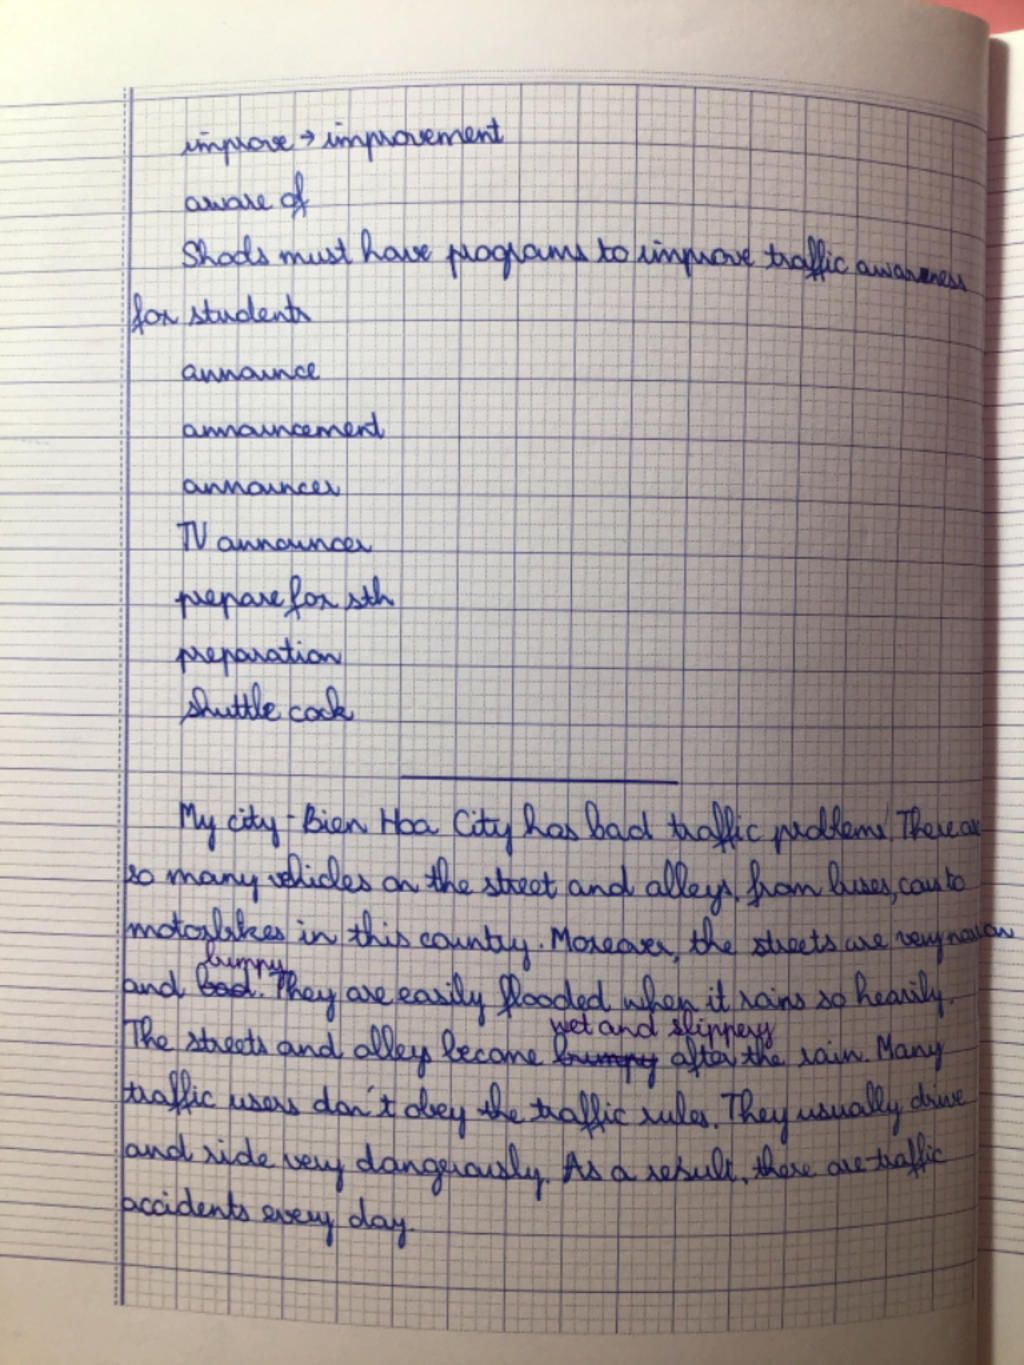 improve → improvement
aware of
Shools must have programs to improve traffic awareness
for students
announce
announcement
announcer
TV announcer
prepare for sth
preparation
shuttle cock
My city - Bien Hoa City has bad traffic problems. There are
so many vehicles on the street and alleys, from buses, cars to
motorbikes in this country. Moreover, the streets are very narrow
bumpy
and bad. They are easily flooded when it rains so heavily.
wet and slippery
The streets and alleys become bumpy after the rain. Many
traffic users don't obey the traffic rules. They usually drive
and ride very dangerously. As a result, there are traffic
accidents every day.